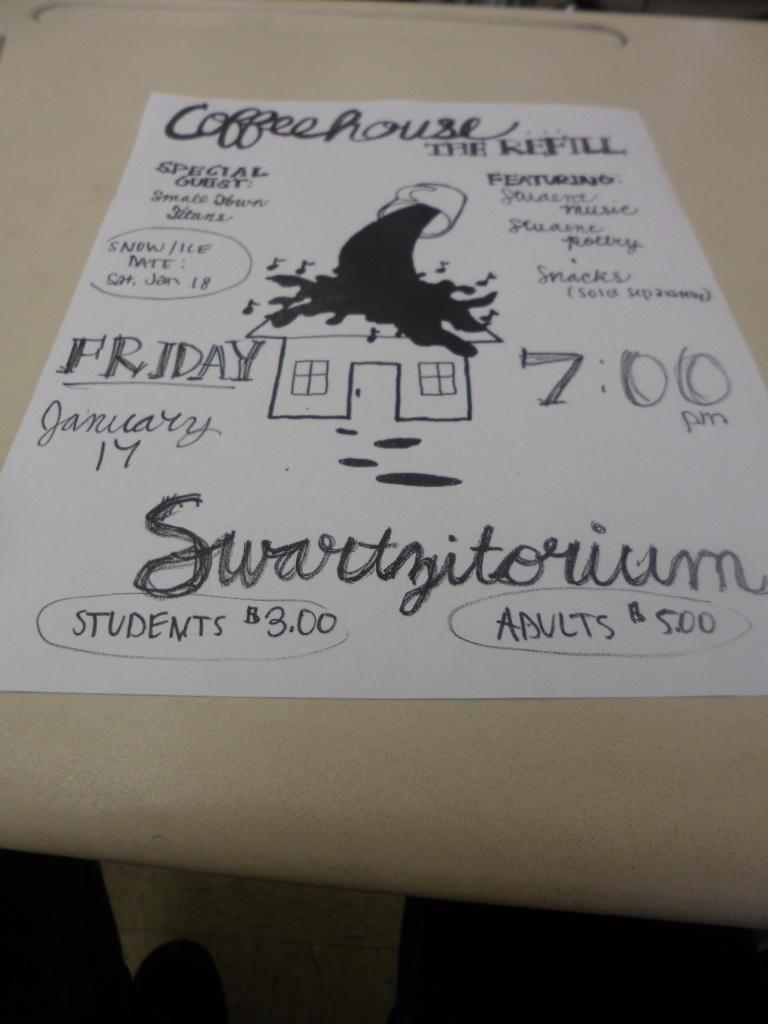 Coffeehouse...
THE REFILL
SPECIAL
GUEST:
Small Town
Titans
SNOW/ICE
DATE:
Sat, Jan 18
FEATURING:
Student
music
Student
poetry
+
Snacks
(sold separately)
FRIDAY
January
17
7:00
pm
Swartzitorium
STUDENTS $3.00
ADULTS $5.00